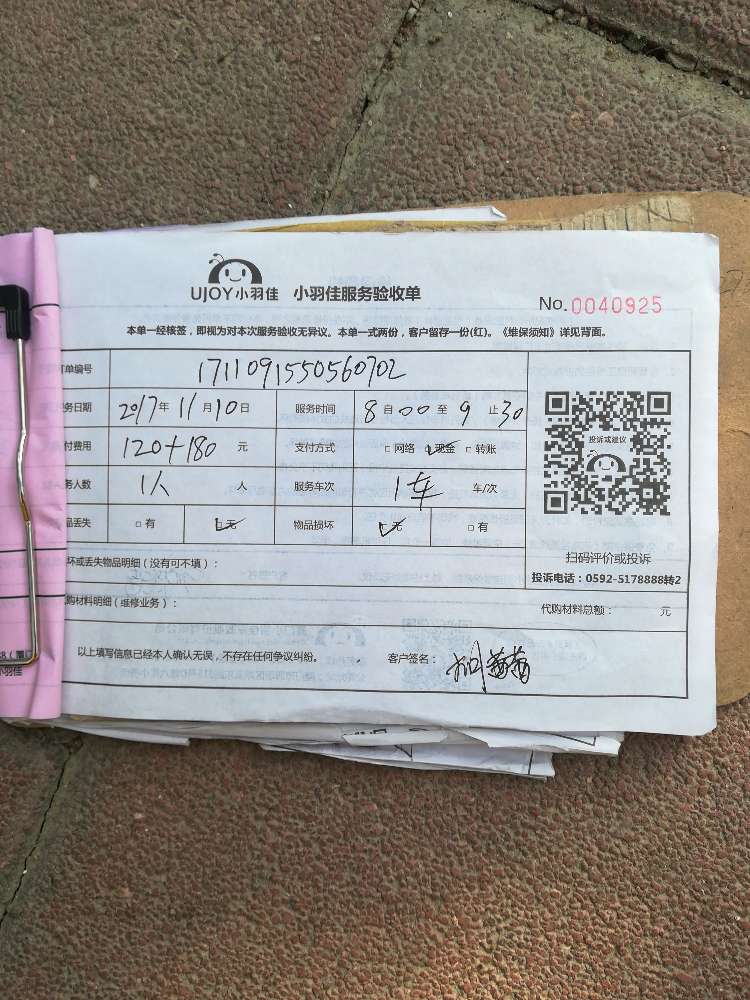 UJOY小羽佳 小羽佳服务验收单
No.0040925
本单一经核签，即视为对本次服务验收无异议。本单一式两份，客户留存一份(红)。《维保须知》详见背面。
订单编号 1711091550560702
务日期 2017年11月10日 服务时间 8自00至9止30
付费用 120+180 元 支付方式 □网络 ☑现金 □转账
务人数 1人 人 服务车次 1车 车/次
品丢失 □有 ☑无 物品损坏 ☑无 □有
投诉或建议
扫码评价或投诉
投诉电话：0592-5178888转2
坏或丢失物品明细（没有可不填）：
购材料明细（维修业务）： 代购材料总额： 元
以上填写信息已经本人确认无误，不存在任何争议纠纷。 客户签名：
小羽佳